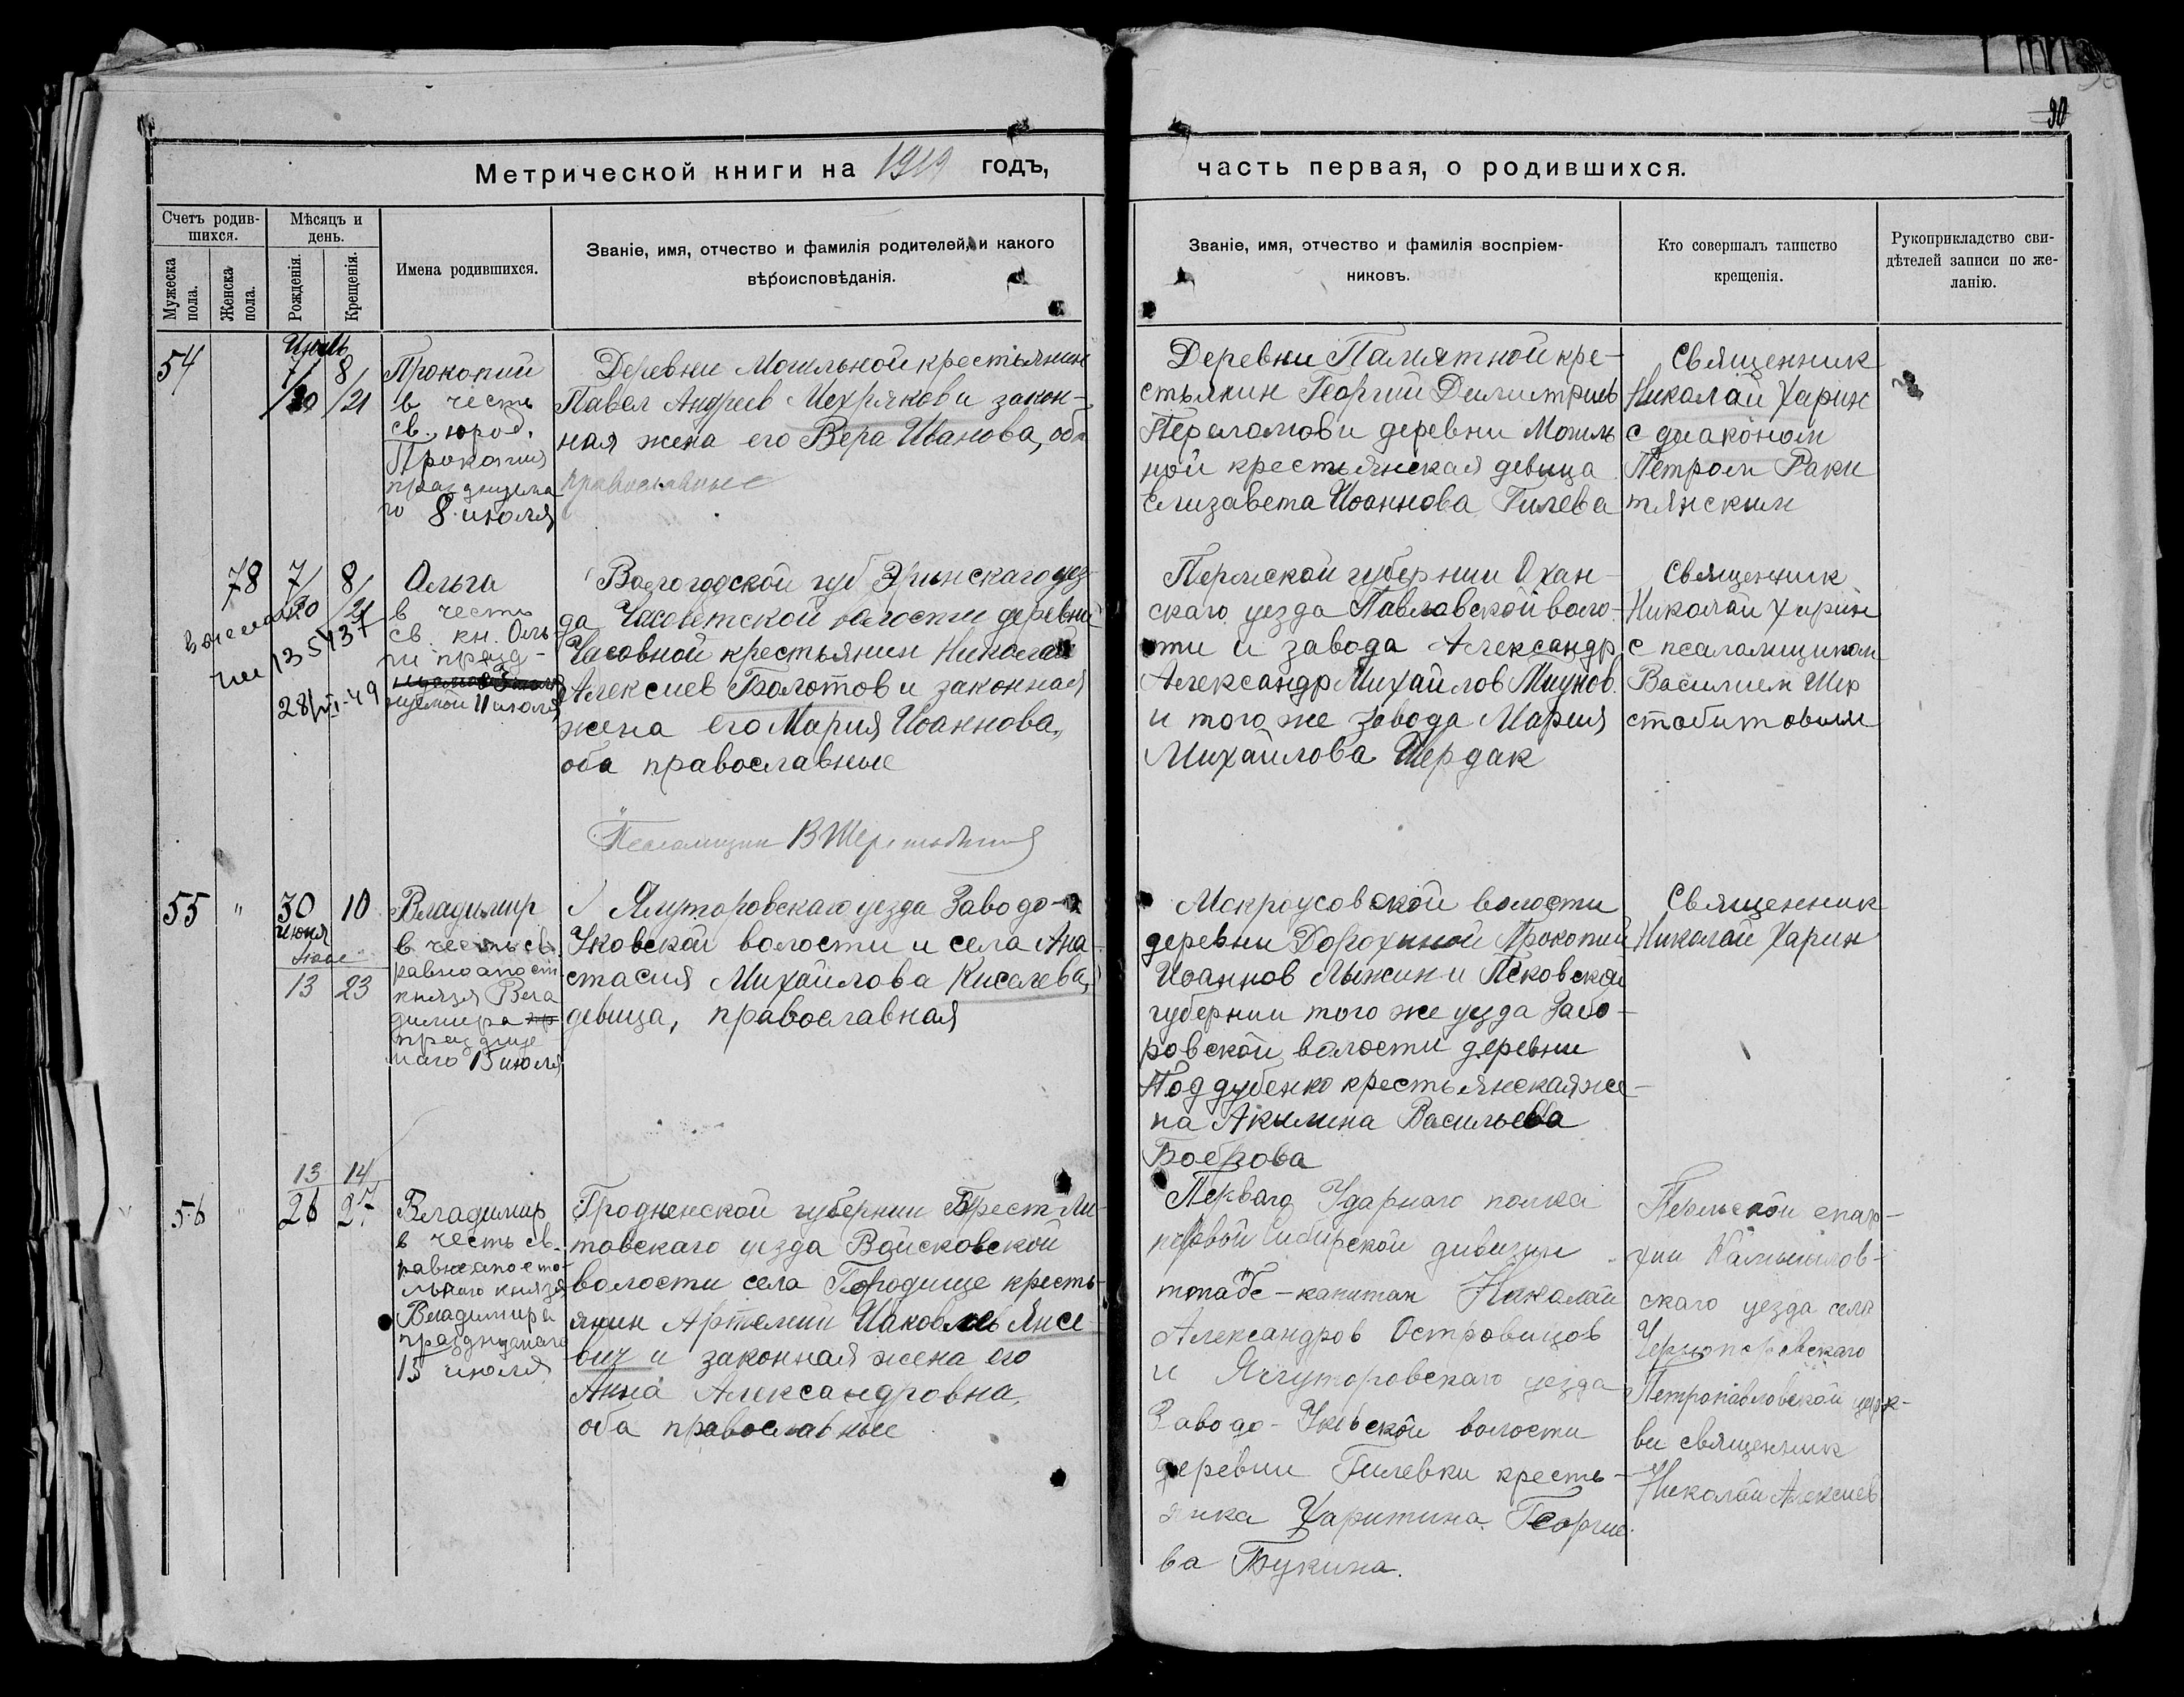 30
Метрической книги на 1919 годъ,
часть первая, о родившихся.
Счетъ родив-
шихся.
Мѣсяцъ и
день.
Мужеска
пола.
Женска
пола.
Рожденія.
Крещенія.
Имена родившихся.
Званіе, имя, отчество и фамилія родителей, и какого
вѣроисповѣданія.
Званіе, имя, отчество и фамилія воспріем-
никовъ.
Кто совершалъ таинство
крещенія.
Рукоприкладство сви-
дѣтелей записи по же-
ланію.
Июль
54
7/20
8/21
Прокопий
в честь
св. юрод.
Прокопия
празднуема
го 8 июля
Деревни Могильной крестьянин
Павел Андреев Мехряков и закон-
ная жена его Вера Иванова, оба
православные
Деревни Памятной кре-
стьянин Георгий Димитриев
Переломов и деревни Могиль
ной крестьянская девица
Елизавета Иоаннова Гилева
Священник
Николай Харин
с диаконом
Петром Раки
тянским
78
7/20
8/21
135437
28/VI-49
Ольга
в честь
св. кн. Оль-
ги празд-
нуемой 11 июля
Вологодской губ Яринскаго уез-
да Часоветской волости деревни
Часовной крестьянин Николай
Алексиев Болотов и законная
жена его Мария Иоаннова,
оба православные
Псаломщик В Шерстобитов
Пермской губернии Охан-
скаго уезда Павловской воло-
сти и завода Александр
Александр Михайлов Мизнов
и того же завода Мария
Михайлова Шердак
Священник
Николай Харин
с псаломщиком
Василием Шер
стобитовым
55
"
30
июня
10
июле
13
23
Владимир
в честь св.
равноапост
князя Вла
димира пр
праздуе
маго 15 июля
Ялуторовскаго уезда Заводо-
Уковской волости и села Ана-
стасия Михайлова Киселева,
девица, православная
Мокроусовской волости
деревни Дорохиной Прокопий
Иоаннов Лыжин и Псковской
губернии того же уезда Забо-
ровской волости деревни
Поддубенко крестьянская же-
на Акилина Васильева
Боброва
Священник
Николай Харин
56
"
13
26
14
27
Владимир
в честь св.
равноапосто-
льнаго князя
Владимира
празднуемаго
15 июля
Гродненской губернии Брест-Ли-
товскаго уезда Войсковской
волости села Городище кресть-
янин Артемий Иаковлев Янсе-
вич и законная жена его
Анна Александровна,
оба православные
Перваго Ударнаго полка
первой Сибирской дивизии
штабс-капитан Николай
Александров Островидов
и Ялуторовскаго уезда
Заводо-Уковской волости
деревни Гилевки кресть-
янка Харитина Георгие
ва Букина.
Пермской епар-
хии Камышлов-
скаго уезда села
Петропавловской церк-
ви священник
Николай Алексиев